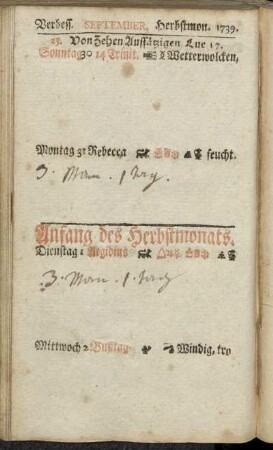 Verbess. SEPTEMBER, Herbstmon. 1739.
23. Von Zehen Aussätzigen Luc 17.
Sonntag 30 14 Trinit. Wetterwolcken,
Montag 31 Rebecca feucht.
3. Man. 1 Tag.
Anfang des Herbstmonats.
Dienstag 1 Aegidius
3. Man. 1. Tag
Mittwoch 2 Bußtag Windig, tro